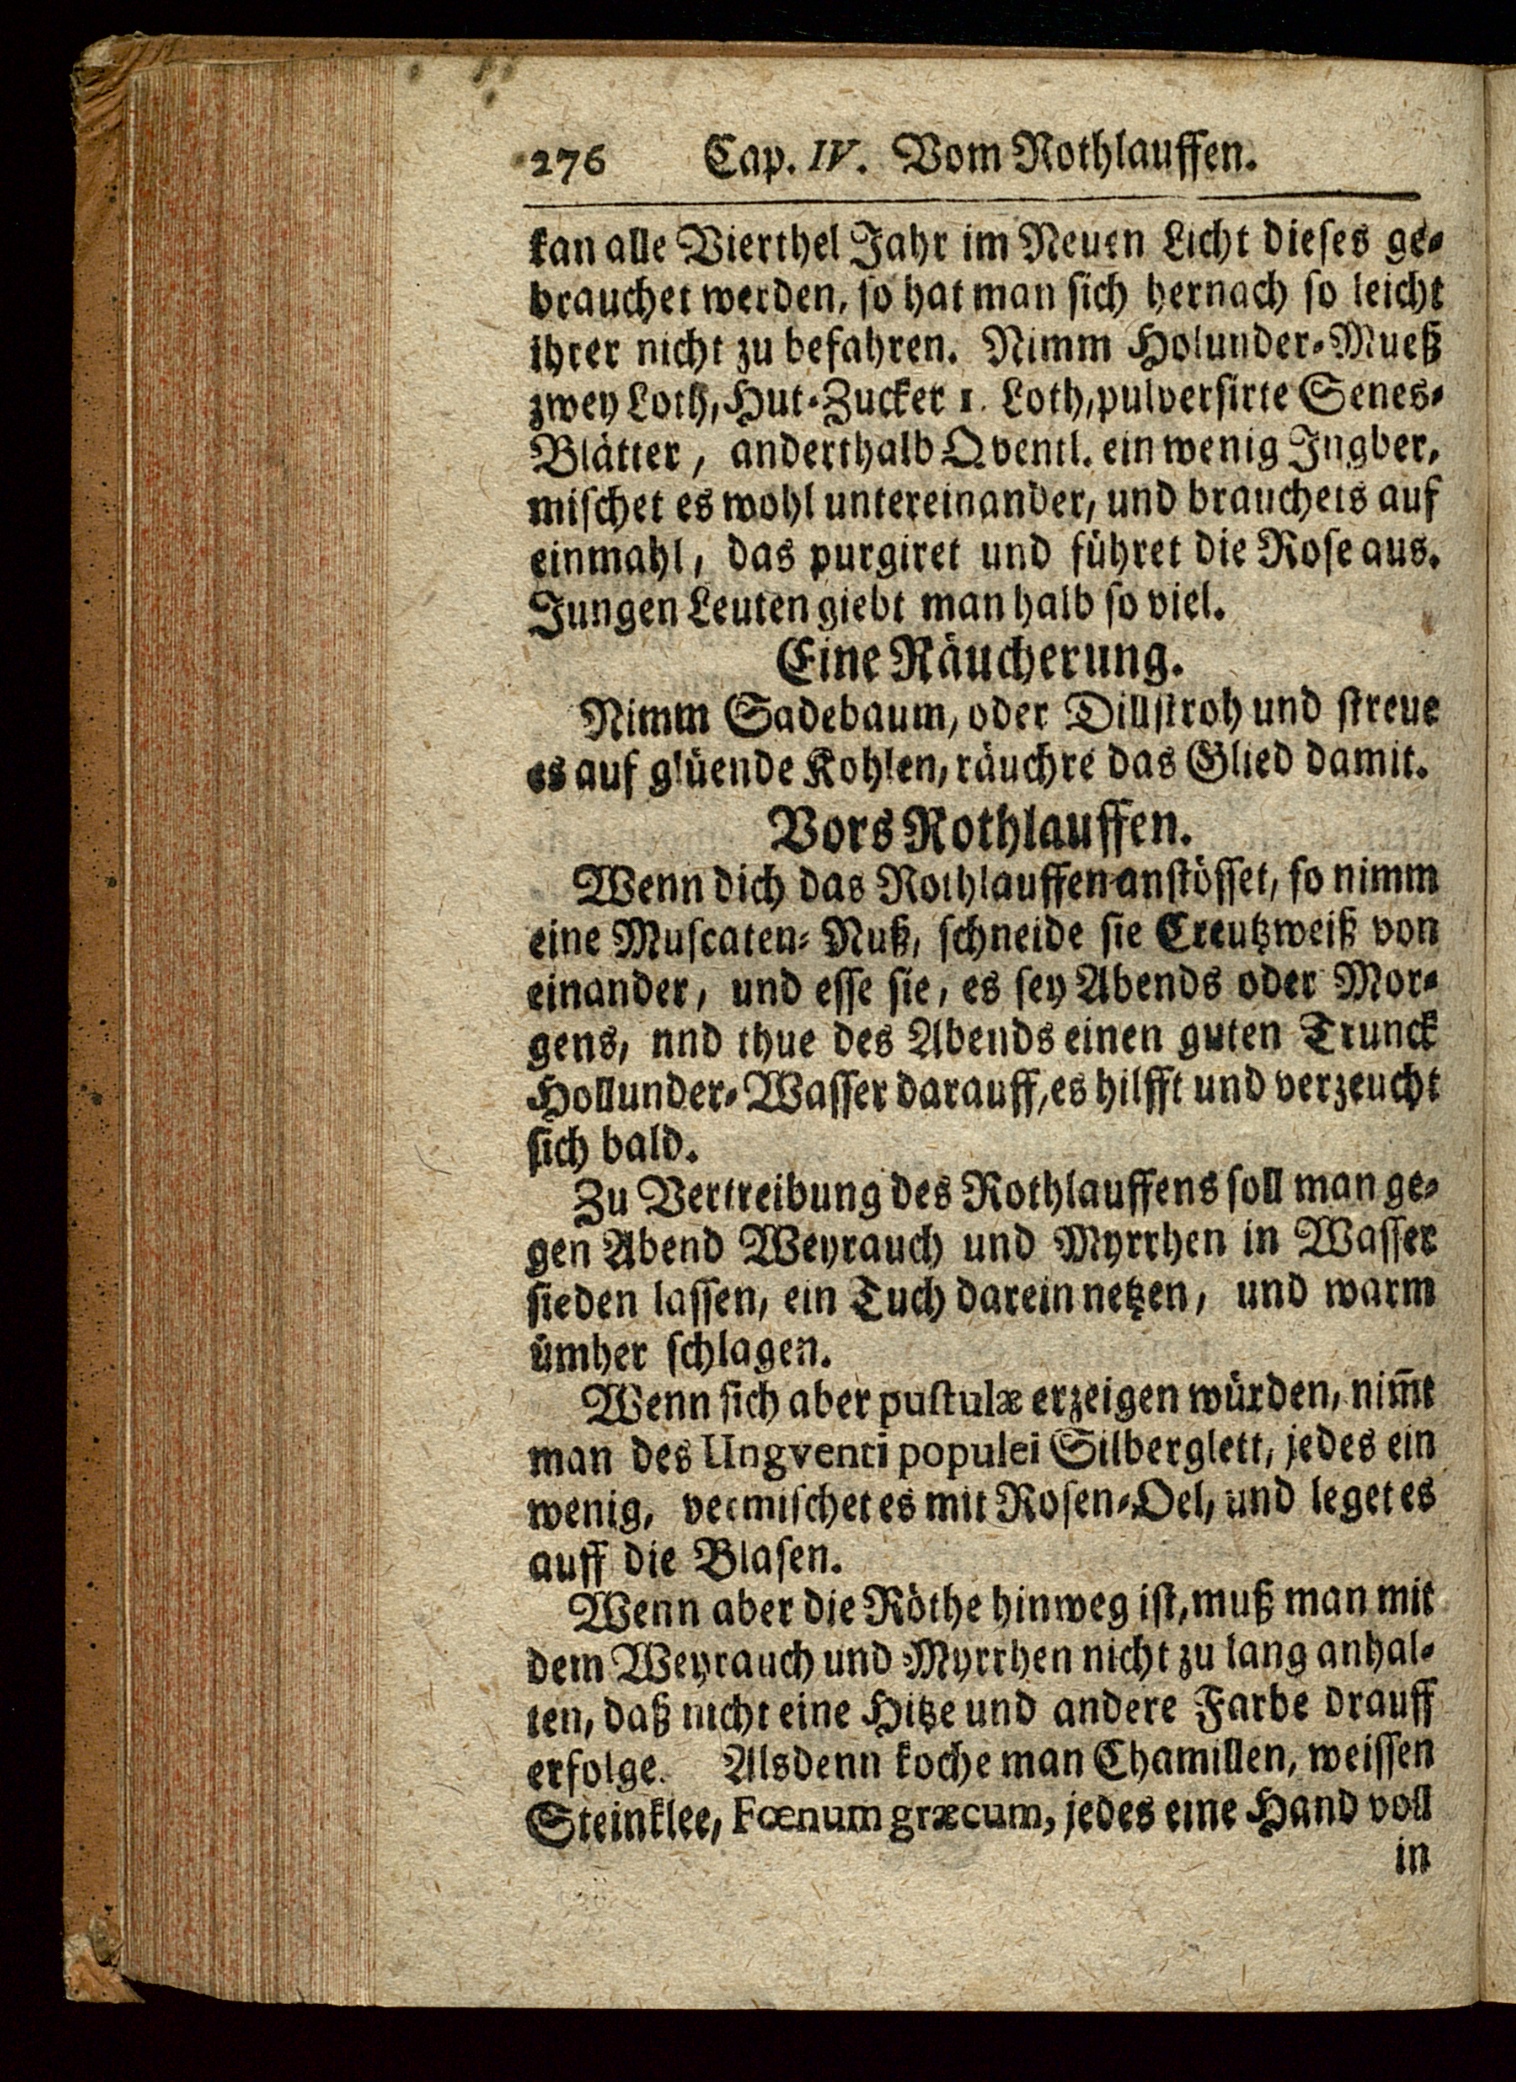 276 Cap. IV. Vom Rothlauffen.
kan alle Vierthel Jahr im Neuen Licht dieses ge-
brauchet werden, so hat man sich hernach so leicht
ihrer nicht zu befahren. Nimm Holunder-Mueß
zwey Loth, Hut-Zucker 1. Loth, pulversirte Senes-
Blätter, anderthalb Qventl. ein wenig Ingber,
mischet es wohl untereinander, und brauchets auf
einmahl, das purgiret und führet die Rose aus.
Jungen Leuten giebt man halb so viel.
Eine Räucherung.
Nimm Sadebaum, oder Dillstroh und streue
es auf glüende Kohlen, räuchre das Glied damit.
Vors Rothlauffen.
Wenn dich das Rothlauffen anstösset, so nimm
eine Muscaten-Nuß, schneide sie Creutzweiß von
einander, und esse sie, es sey Abends oder Mor-
gens, nnd thue des Abends einen guten Trunck
Hollunder-Wasser darauff, es hilfft und verzeucht
sich bald.
Zu Vertreibung des Rothlauffens soll man ge-
gen Abend Weyrauch und Myrrhen in Wasser
sieden lassen, ein Tuch darein netzen, und warm
ümher schlagen.
Wenn sich aber pustulæ erzeigen würden, nim̄t
man des Ungventi populei Silberglett, jedes ein
wenig, vermischet es mit Rosen-Oel, und leget es
auff die Blasen.
Wenn aber die Röthe hinweg ist, muß man mit
dem Weyrauch und Myrrhen nicht zu lang anhal-
ten, daß nicht eine Hitze und andere Farbe drauff
erfolge. Alsdenn koche man Chamillen, weissen
Steinklee, Fœnum græcum, jedes eine Hand voll
in